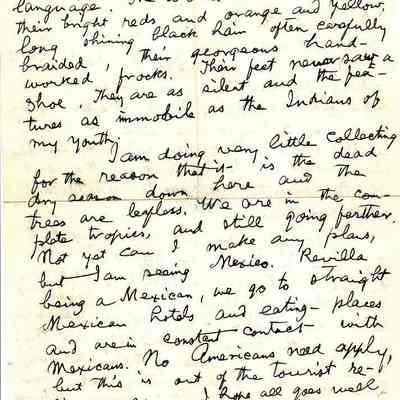 language.
their bright reds and orange and yellow,
long shining black hair often carefully
braided, their georgeous hand-
worked frocks. Their feet never saw a
shoe. They are as silent and the fea-
tures as immobile as the Indians of
my youth.
I am doing very little collecting
for the reason that it is the dead
dry season down here and the
trees are leafless. We are in the com-
plete tropics, and still going farther.
Not yet can I make any plans,
but I am seeing Mexico. Revilla
being a Mexican, we go to straight
Mexican hotels and eating places
and are in constant contact with
Mexicans. No Americans need apply,
but this is out of the tourist re-
I hope all goes well